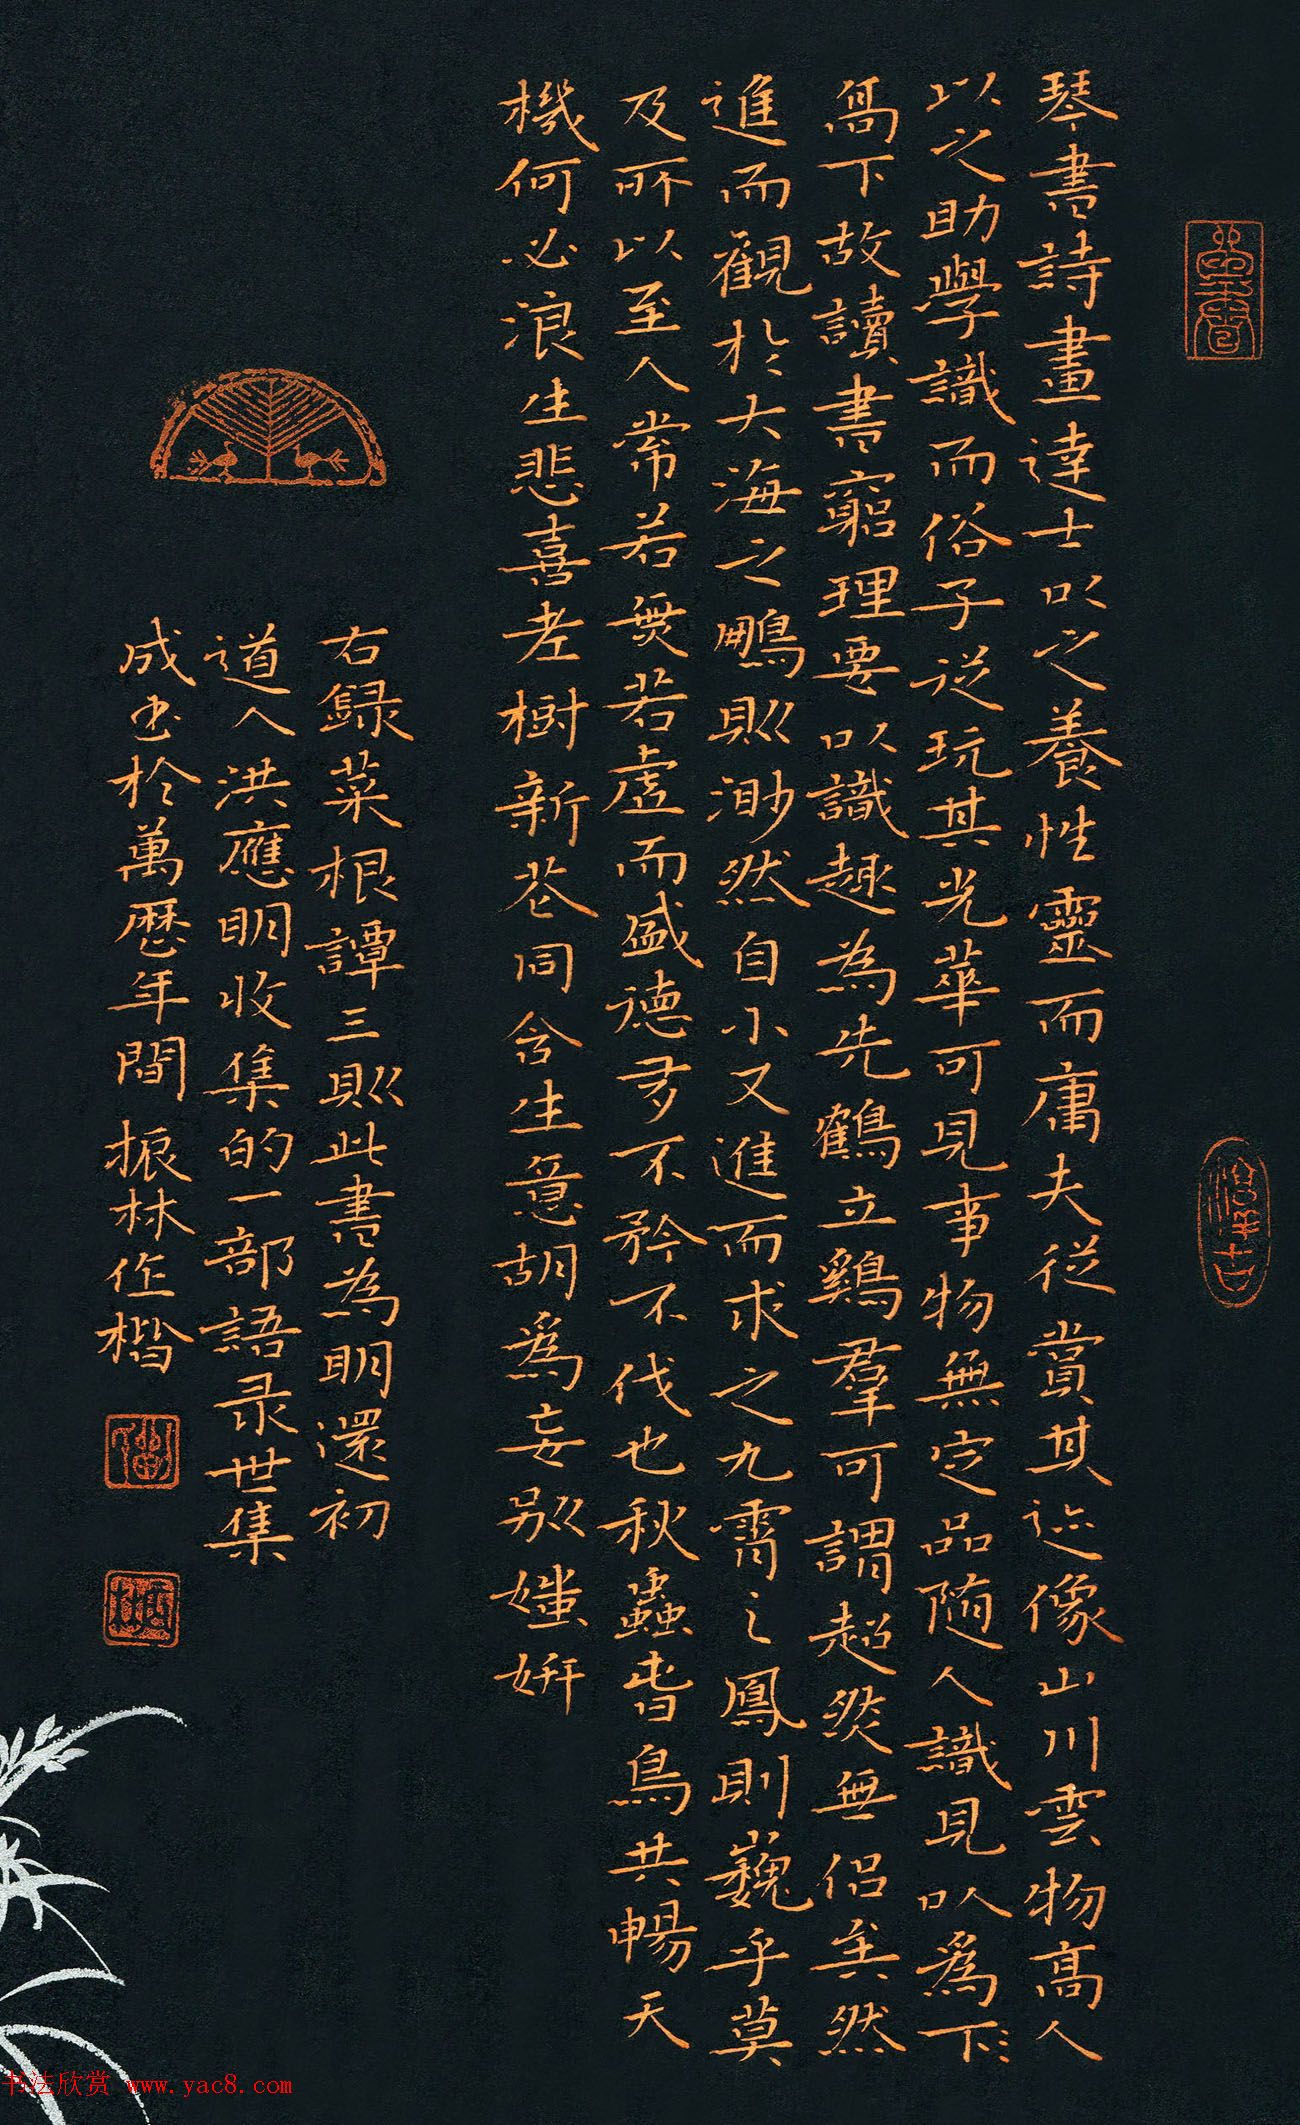 琴書詩畫達士以之養性靈而庸夫従賞其迹像山川雲物髙人
以之助學識而俗子従玩其光華可見事物無定品随人識見以為下
髙下故讀書窮理要以識趣為先鶴立鷄羣可謂超然無侣矣然
進而觀於大海之鵬則渺然自小又進而求之九霄之鳳則巍乎莫
及所以至人常若無若虚而盛德多不矜不伐也秋蟲春鳥共暢天
機何必浪生悲喜老樹新花同含生意胡為妄别媸妍
右録菜根譚三則此書為明還初
道人洪應明收集的一部語录世集
成书於萬歷年間振林作楷
书法欣赏 www.yac8.com